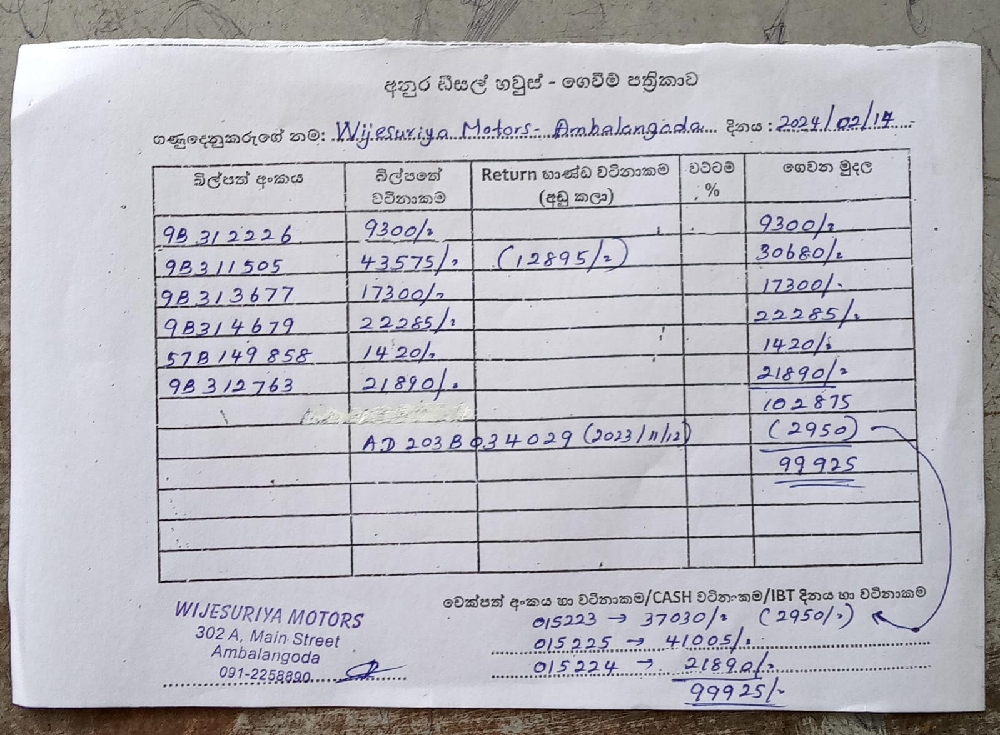 අනුර ඩීසල් හවුස් - ගෙවීම් පත්‍රිකාව
ගණුදෙනුකරුගේ නම: Wijesuriya Motors - Ambalangoda දිනය : 2024/02/14
බිල්පත් අංකය බිල්පතේ වටිනාකම Return භාණ්ඩ වටිනාකම (අඩු කලා) වට්ටම් % ගෙවන මුදල
9B312226 9300/= 9300/=
9B311505 43575/= (12895/=) 30680/=
9B313677 17300/= 17300/=
9B314679 22285/= 22285/=
57B149858 1420/= 1420/=
9B312763 21890/= 21890/=
102875
AD203B034029 (2023/11/12) (2950)
99925
චෙක්පත් අංකය හා වටිනාකම/CASH වටිනාකම/IBT දිනය හා වටිනාකම
015223 → 37030/= (2950/=)
015225 → 41005/=
015224 → 21890/=
99925/-
WIJESURIYA MOTORS
302 A, Main Street
Ambalangoda
091-2258890